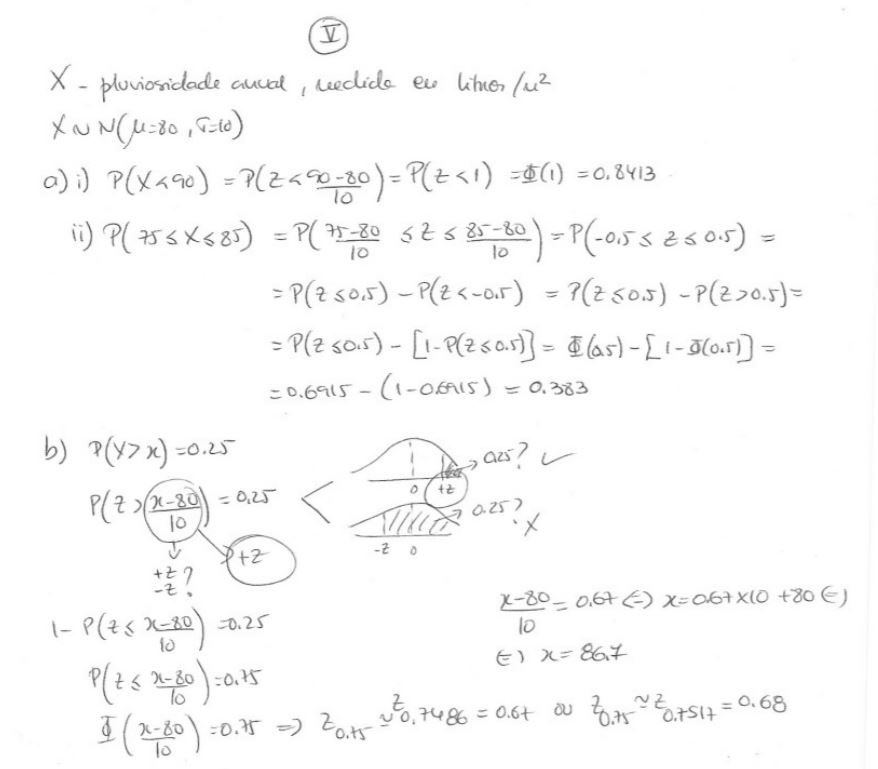 V
X - pluviosidade anual, medida em litros/m²
X ~ N(μ=80, σ=10)
a) i) P(X<90) = P(Z < (90-80)/10) = P(Z<1) = Φ(1) = 0.8413
ii) P(75≤X≤85) = P((75-80)/10 ≤ Z ≤ (85-80)/10) = P(-0.5 ≤ Z ≤ 0.5) =
= P(Z≤0.5) - P(Z<-0.5) = P(Z≤0.5) - P(Z>0.5) =
= P(Z≤0.5) - [1-P(Z≤0.5)] = Φ(0.5) - [1-Φ(0.5)] =
= 0.6915 - (1-0.6915) = 0.383
b) P(X>x) = 0.25
0.25? ✓
0 +z
P(Z > (x-80)/10) = 0.25
0.25? X
-z 0
+z
+z ?
-z ?
1 - P(Z ≤ (x-80)/10) = 0.25
(x-80)/10 = 0.67 ⇔ x = 0.67×10 + 80 ⇔
⇔ x = 86.7
P(Z ≤ (x-80)/10) = 0.75
Φ((x-80)/10) = 0.75 ⇒ z0.75 ≃ z0.7486 = 0.67 ou z0.75 ≃ z0.7517 = 0.68